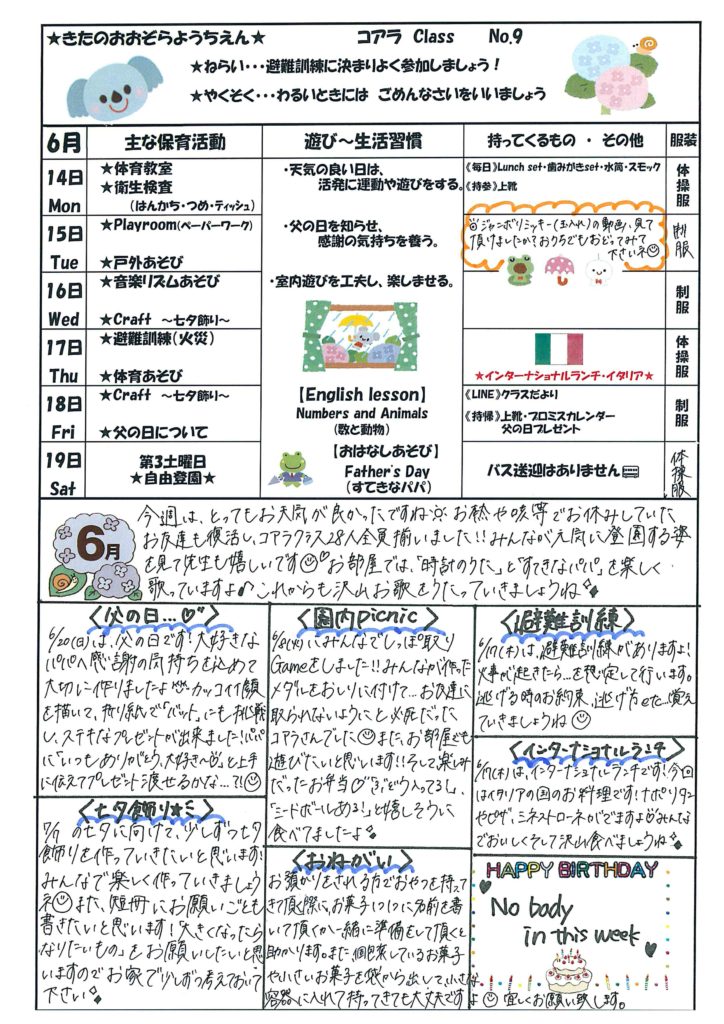 ★きたのおおぞらようちえん★ コアラ Class No.9
★ねらい・・・避難訓練に決まりよく参加しましょう！
★やくそく・・・わるいときには ごめんなさいをいいましょう
6月 主な保育活動 遊び～生活習慣 持ってくるもの ・ その他 服装
14日 Mon
★体育教室
★衛生検査
(はんかち・つめ・ティッシュ)
・天気の良い日は、
活発に運動や遊びをする。
《毎日》Lunch set・歯みがきset・水筒・スモック
《持参》上靴
体操服
15日 Tue
★Playroom(ペーパーワーク)
★戸外あそび
・父の日を知らせ、
感謝の気持ちを養う。
ジャンボリミッキー(玉入れ)の動画、見て
頂けましたか？おうちでもおどってみて
下さいネ
制服
16日 Wed
★音楽リズムあそび
★Craft ～七夕飾り～
・室内遊びを工夫し、楽しませる。
制服
17日 Thu
★避難訓練(火災)
★体育あそび
★インターナショナルランチ・イタリア★
体操服
18日 Fri
★Craft ～七夕飾り～
★父の日について
【English lesson】
Numbers and Animals
(数と動物)
《LINE》クラスだより
《持帰》上靴・プロミスカレンダー
父の日プレゼント
制服
19日 Sat
第3土曜日
★自由登園★
【おはなしあそび】
Father's Day
(すてきなパパ)
バス送迎はありません
体操服
6月
今週は、とってもお天気が良かったですね お熱や咳等でお休みしていた
お友達も復活し、コアラクラス28人全員揃いました!!みんなが元気に登園する姿
を見て先生も嬉しいです♡お部屋では、「時計のうた」と「すてきなパパ」を楽しく
歌っていますよ♪これからも沢山お歌をうたっていきましょうね
〈父の日…♡〉
6/20(日)は、父の日です！大好きな
パパへ感謝の気持ちを込めて
大切に作りましたよ カッコイイ顔
を描いて、折り紙で「バット」にも挑戦
し、ステキなプレゼントが出来ました！パパ
に「いつもありがとう、大好き～」と上手
に伝えてプレゼント渡せるかな…?!
〈園内picnic〉
6/8(火)にみんなでしっぽ取り
Gameをしました!!みんなが作った
メダルをおしりに付けて…お友達に
取られないようにと必死だった
コアラさんでした また、お部屋でも
遊びたいと思います!!そして楽しみ
だったお弁当♡
「ミートボールある！」と嬉しそうに
食べてましたよ
〈避難訓練〉
6/17(木)は、避難訓練がありますよ！
火事が起きたら…を想定して行います。
逃げる時のお約束、逃げ方etc…覚え
ていきましょうね
〈インターナショナルランチ〉
6/17(木)は、インターナショナルランチです！今回
はイタリアの国のお料理です！ナポリタン
やピザ、ミネストローネがでますよ みんな
でおいしくそして沢山食べましょうね
〈七夕飾り★ミ〉
7/7の七夕に向けて、少しずつ七夕
飾りを作っていきたいと思います！
みんなで楽しく作っていきましょう
ネ また、短冊にお願いごとも
書きたいと思います！「大きくなったら
なりたいもの」をお願いしたいと思
いますのでお家で少しずつ考えておいて
下さい
〈おねがい〉
お預かりをされる方でおやつを持って
きて頂く際に、お菓子1つ1つに名前を書
いて頂くか一緒に準備をして頂くと
助かります。また、個包装しているお菓子
や小さいお菓子を袋から出して、小さな
容器に入れて持ってきても大丈夫です
よ 宜しくお願い致します。
HAPPY BIRTHDAY
No body
in this week